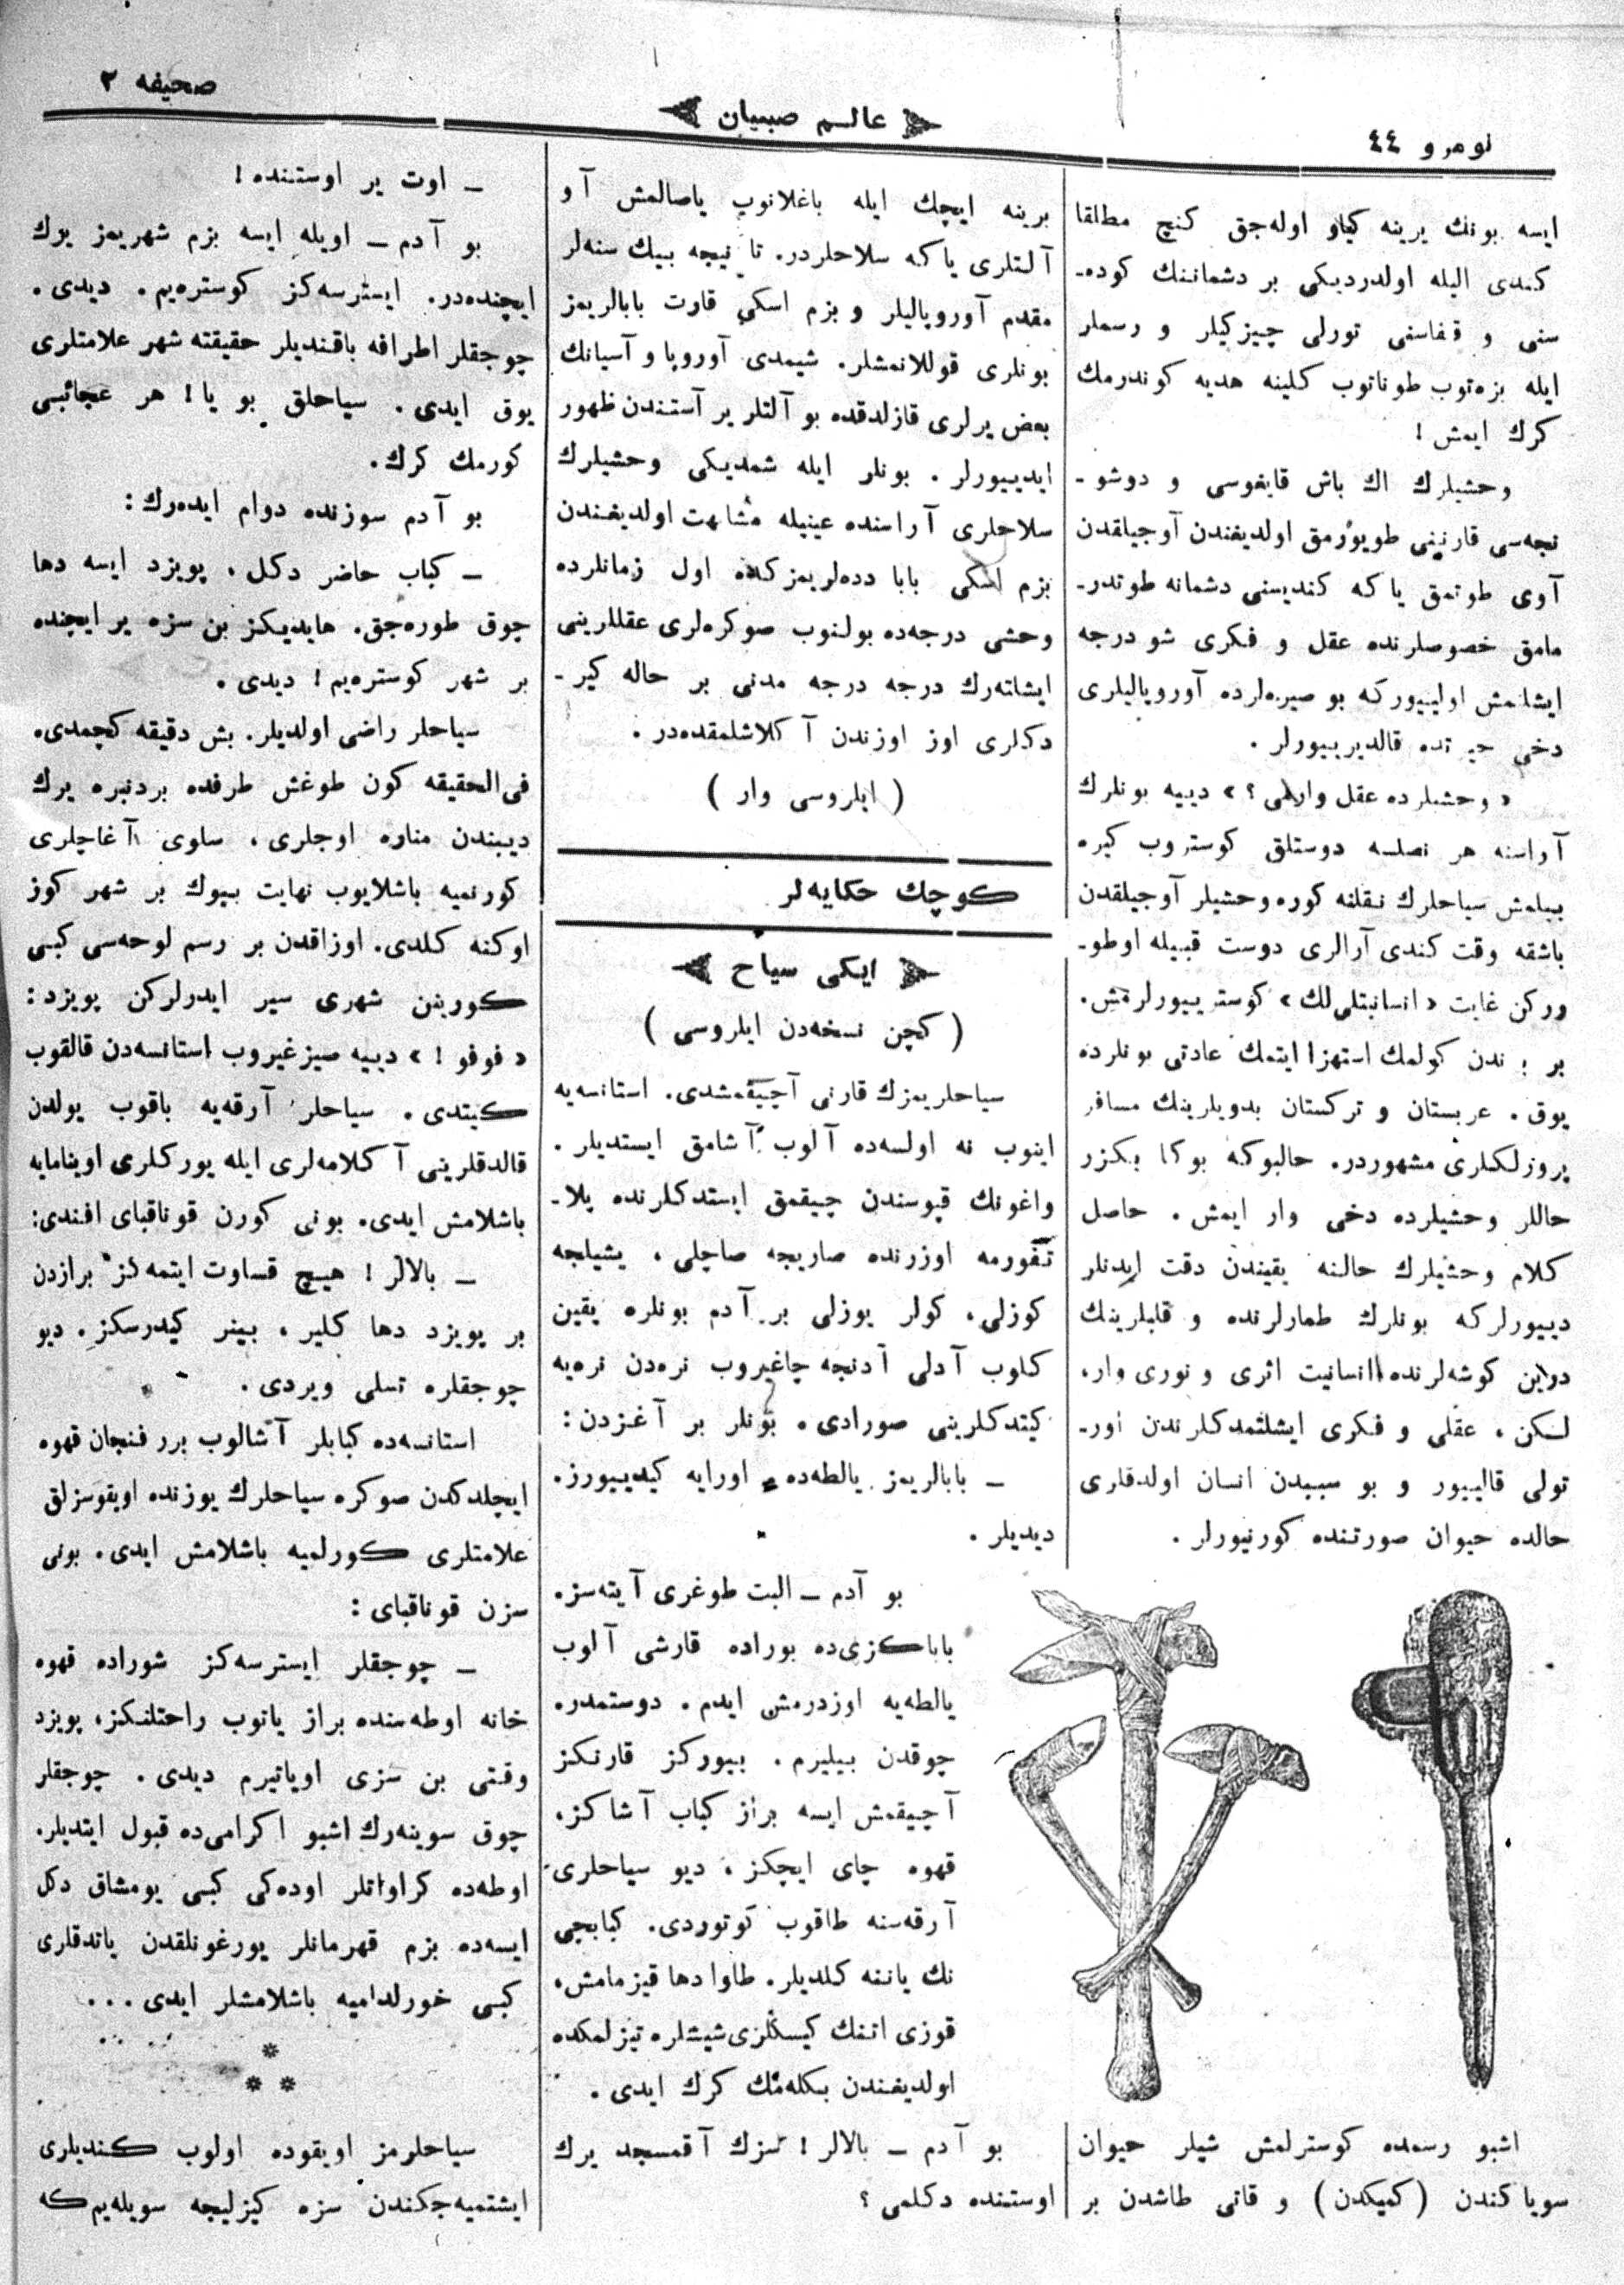 نومرو ٤٤
عالم صبيان
صحيفه ٢
ايسه بونك يرينه كياو اوله‌جق كنج مطلقا
كندى اليله اولدرديكى بر دشماننك كوده‌ـ
سنى و قفاسنى تورلى چيزكيلر و رسملر
ايله بزه‌توب طوناتوب كلينه هديه كوندرمك
كرك ايمش!
وحشيلرك اك باش قايغوسى و دوشو ـ
نجه‌سى قارنينى طويورمق اولديغندن آوجيلقدن
آوى طوتمق ياكه كنديسنى دشمانه طوتدرـ
مامق خصوصلرنده عقل و فكرى شو درجه
ايشلنمش اولييوركه بو صيره‌لرده آوروپاليلرى
دخى حيرتده قالديرييورلر.
«وحشيلرده عقل وارمى؟» دييه بونلرك
آراسنه هر نصلسه دوستلق كوستروب كيره
بيلمش سياحلرك نقلنه كوره وحشيلر آوجيلقدن
باشقه وقت كندى آرالرى دوست قبيله اوطوـ
روركن غايت «انسانيتلى‌لك» كوسترييورلرمش.
بر برندن كولمك استهزا ايتمك عادتى بونلرده
يوق. عربستان و تركستان بدويلرينك مسافر
پروزلكلرى مشهوردر. حالبوكه بوكا بكزر
حاللر وحشيلرده دخى وار ايمش. حاصل
كلام وحشيلرك حالنه يقيندن دقت ايدنلر
دييورلركه بونلرك طمارلرنده و قلبلرينك
درين كوشه‌لرنده انسانيت اثرى و نورى وار،
لكن، عقلى و فكرى ايشلتمدكلرندن اورـ
تولى قالييور و بو سببدن انسان اولدقلرى
حالده حيوان صورتنده كورنيورلر.
اشبو رسمده كوسترلمش شيلر حيوان
سوياكندن (كميكدن) و قاتى طاشدن بر
برينه ايچك ايله باغلانوب ياصالمش آو
آلتلرى ياكه سلاحلردر. تا نيچه بيك سنه‌لر
مقدم آوروپاليلر و بزم اسكى قارت بابالريمز
بونلرى قوللانمشلر. شيمدى آوروپا و آسيانك
بعض يرلرى قازلدقده بو آلتلر ير آستندن ظهور
ايدييورلر. بونلر ايله شمديكى وحشيلرك
سلاحلرى آراسنده عينيله مشابهت اولديغندن
بزم اسكى بابا دده‌لريمزكده اول زمانلرده
وحشى درجه‌ده بولنوب صوكره‌لرى عقللرينى
ايشلته‌رك درجه درجه مدنى بر حاله كيرـ
دكلرى اوز اوزندن آكلاشلمقده‌در.
(ايلروسى وار)
كوچك حكايه‌لر
ايكى سياح
(كچن نسخه‌دن ايلروسى)
سياحلريمزك قارنى آچيقمشدى. استانسه‌يه
اينوب نه اولسه‌ده آلوب آشامق ايستديلر.
واغونك قپوسندن چيقمق ايستدكلرنده پلاـ
تفورمه اوزرنده صاريجه صاچلى، يشيلجه
كوزلى، كولر يوزلى بر آدم بونلره يقين
كلوب آدلى آدنجه چاغيروب نره‌دن نره‌يه
كيتدكلرينى صورادى. بونلر بر آغزدن:
ـ بابالريمز يالطه‌ده، اورايه كيدييورز.
ديديلر.
بو آدم ـ البت طوغرى آيته‌سز.
باباكزى‌ده بوراده قارشى آلوب
يالطه‌يه اوزدرمش ايدم. دوستمدر.
چوقدن بيليرم. بيوركز قارنكز
آچيقمش ايسه براز كباب آشاكز،
قهوه چاى ايچكز، ديو سياحلرى
آرقه‌سنه طاقوب كوتوردى. كبابجى
نك ياننه كلديلر. طاوا دها قيزمامش،
قوزى اتنك كيسكلرى شيشلره تيزلمكده
اولديغندن بكله‌مك كرك ايدى.
بو آدم ـ بالالر! سزك آقمسجد يرك
اوستنده دكلمى؟
ـ اوت ير اوستنده!
بو آدم ـ اويله ايسه بزم شهريمز يرك
ايچنده‌در. ايسترسه‌كز كوستره‌يم. ديدى.
چوجقلر اطرافه باقنديلر حقيقته شهر علامتلرى
يوق ايدى. سياحلق بو يا! هر عجائبى
كورمك كرك.
بو آدم سوزنده دوام ايده‌رك:
ـ كباب حاضر دكل، پويزد ايسه دها
چوق طوره‌جق. هايديكز بن سزه ير ايچنده
بر شهر كوستره‌يم! ديدى.
سياحلر راضى اولديلر. بش دقيقه كچمدى.
فى‌الحقيقه كون طوغش طرفده بردنبره يرك
ديبندن مناره اوجلرى، ساوى آغاچلرى
كورنميه باشلايوب نهايت بيوك بر شهر كوز
اوكنه كلدى. اوزاقدن بر رسم لوحه‌سى كبى
كورينن شهرى سير ايدرلركن پويزد:
«فوفو!» دييه صيزغيروب استانسه‌دن قالقوب
كيتدى. سياحلر آرقه‌يه باقوب يولدن
قالدقلرينى آكلامه‌لرى ايله يوركلرى اوينامايه
باشلامش ايدى. بونى كورن قوناقباى افندى:
ـ بالالر! هيچ قساوت ايتمه‌كز برازدن
بر پويزد دها كلير، بينر كيدرسكز. ديو
چوجقلره تسلى ويردى.
استانسه‌ده كبابلر آشالوب برر فنجان قهوه
ايچلدكدن صوكره سياحلرك يوزنده اويقوسزلق
علامتلرى كورلميه باشلامش ايدى. بونى
سزن قوناقباى:
ـ چوجقلر ايسترسه‌كز شوراده قهوه
خانه اوطه‌سنده براز ياتوب راحتلنكز، پويزد
وقتى بن سزى اوياتيرم ديدى. چوجقلر
چوق سوينه‌رك اشبو اكرامى‌ده قبول ايتديلر.
اوطه‌ده كراواتلر اوده‌كى كبى يومشاق دكل
ايسه‌ده بزم قهرمانلر يورغونلقدن ياتدقلرى
كبى خورلداميه باشلامشلر ايدى...
سياحلرمز اويقوده اولوب كنديلرى
ايشتميه‌جكندن سزه كيزليجه سويله‌يم‌كه